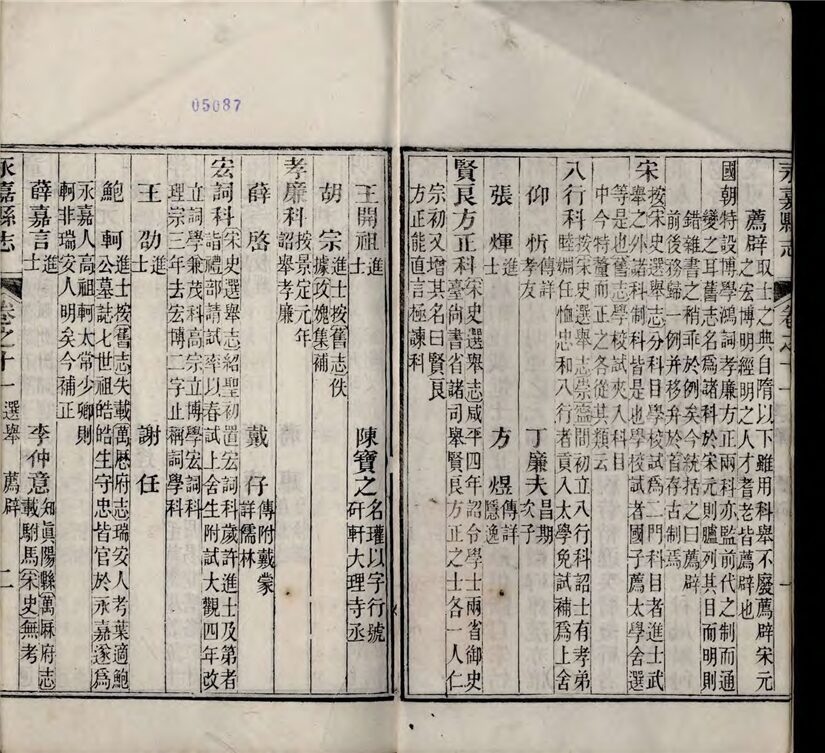 永嘉縣志 卷之十一 一
薦辟 取士之典自隋以下雖用科舉不廢薦辟宋元
之宏博明經明之人才耆老皆薦辟也
國朝特設博學鴻詞孝廉方正兩科亦監前代之制而通
變之耳舊志名爲諸科於宋元則臚列其目而明則
錯雜書之稍乖於例矣今統括之曰薦辟
前後務歸一例并移弁於首存古制焉
宋 按宋史選舉志分科目學校試爲二門科目者進士武
舉之外諸科制科皆是也學校試者國子薦太學舍選
等是也舊志學校試夾入科目
中今特釐而正之各從其類云
八行科 按宋史選舉志崇甯間初立八行科詔士有孝弟
睦婣任恤忠和八行者貢入太學免試補爲上舍
仰忻 傳詳孝友 丁廉夫 昌期次子
張煇 進士 方煜 傳詳隱逸
賢良方正科 宋史選舉志咸平四年詔令學士兩省御史
臺尚書省諸司舉賢良方正之士各一人仁
宗初又增其名曰賢良
方正能直言極諫科
王開祖 進士 陳寶之 名瓘以字行號
硏軒大理寺丞
胡宗 進士按舊志佚
據攻媿集補
孝廉科 按景定元年
詔舉孝廉
薛啓 戴仔 傳附戴蒙
詳儒林
宏詞科 宋史選舉志紹聖初置宏詞科歲許進士及第者
詣禮部請試率以春試上舍生附試大觀四年改
立詞學兼茂科高宗立博學宏詞科
理宗三年去宏博二字止稱詞學科
王劭 進士 謝任
鮑軻 進士按舊志失載萬厯府志瑞安人考葉適鮑
公墓誌七世祖皓皓生守忠皆官於永嘉遂爲
永嘉人高祖軻太常少卿則
軻非瑞安人明矣今補正
薛嘉言 進士 李仲意 知眞陽縣萬厤府志
載駙馬宋史無考
永嘉縣志 卷之十一 選舉 薦辟 二
05087